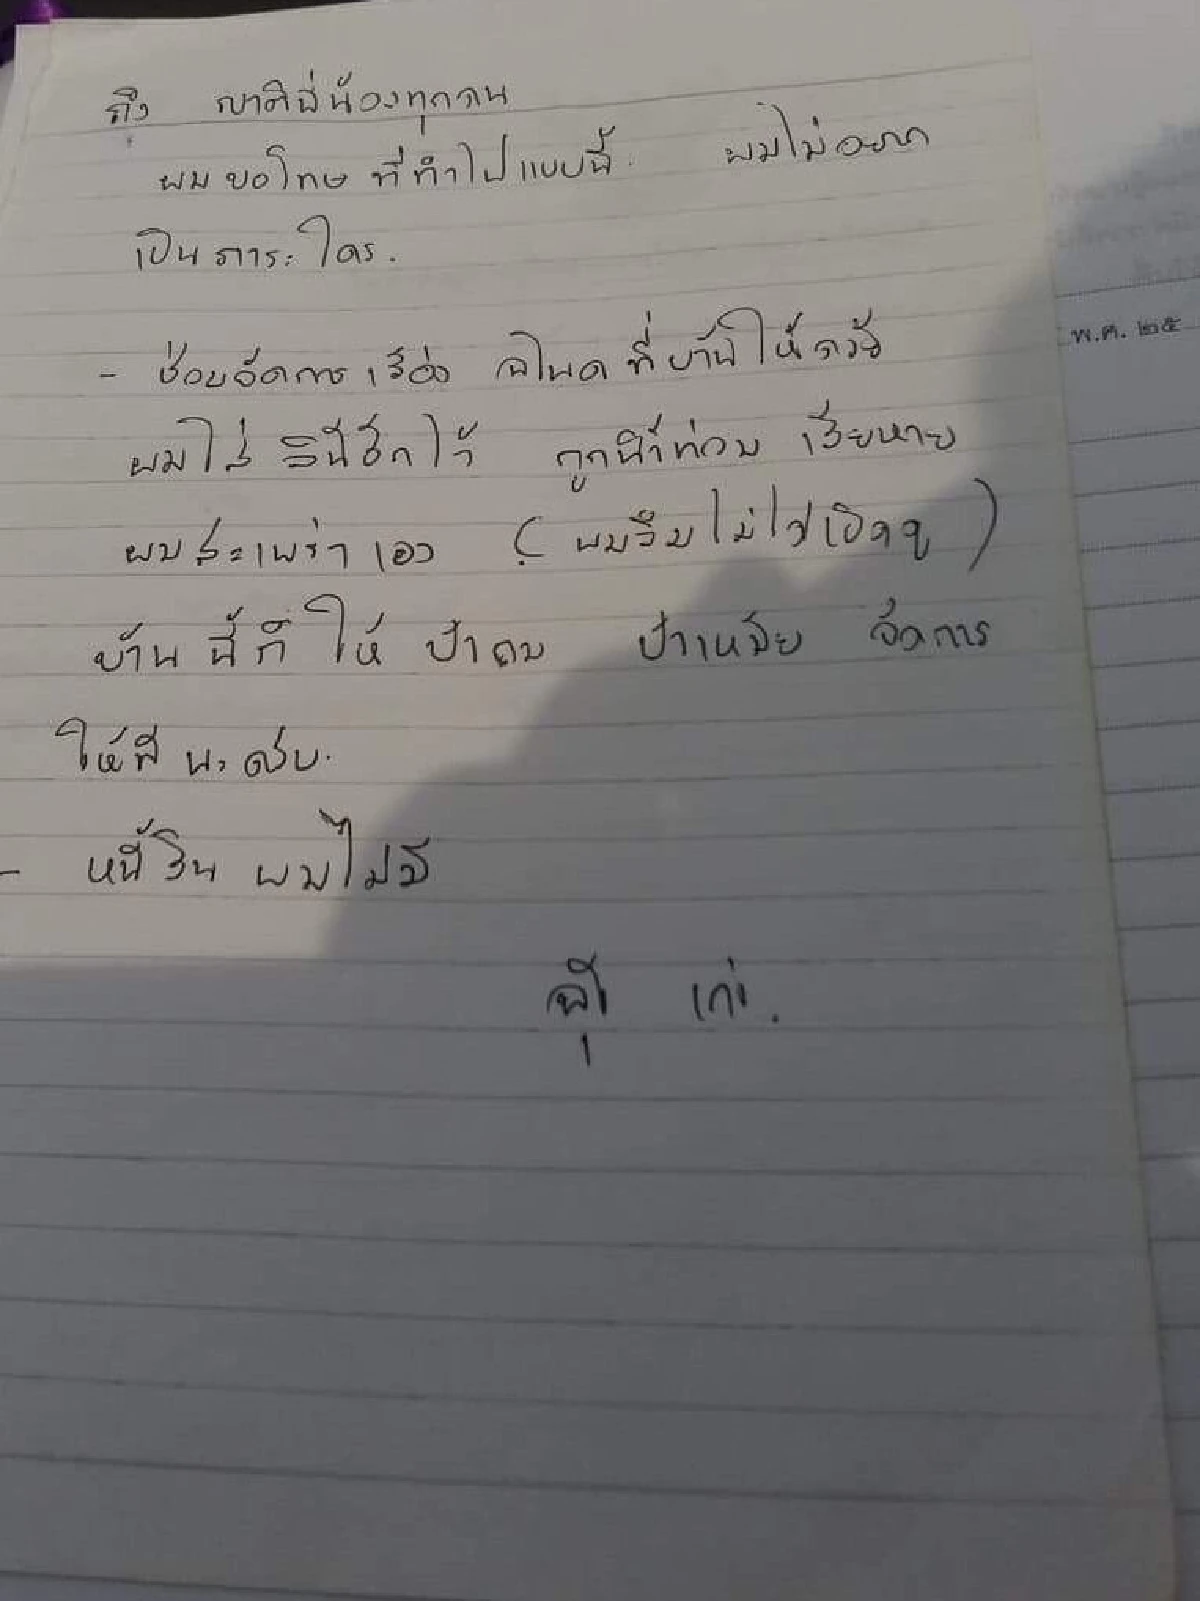 ถึง ญาติพี่น้องทุกคน
ผมขอโทษ ที่ทำไปแบบนี้. ผมไม่อยาก
เป็นภาระ ใคร.
- ช่วยจัดการ เรื่อง โฉนด ที่บ้านให้ด้วย
ผมใส่ ไว้ ถูกน้ำท่วม เสียหาย
ผมสะเพร่า เอง ( ผมลืม ไม่ได้เปิดดู )
บ้าน นี้ก็ ให้ ป้า ป้าเหมีย จัดการ
ให้ที นะครับ.
- หนี้สิน ผมไม่มี
เก่ง.
พ.ศ. ๒๕